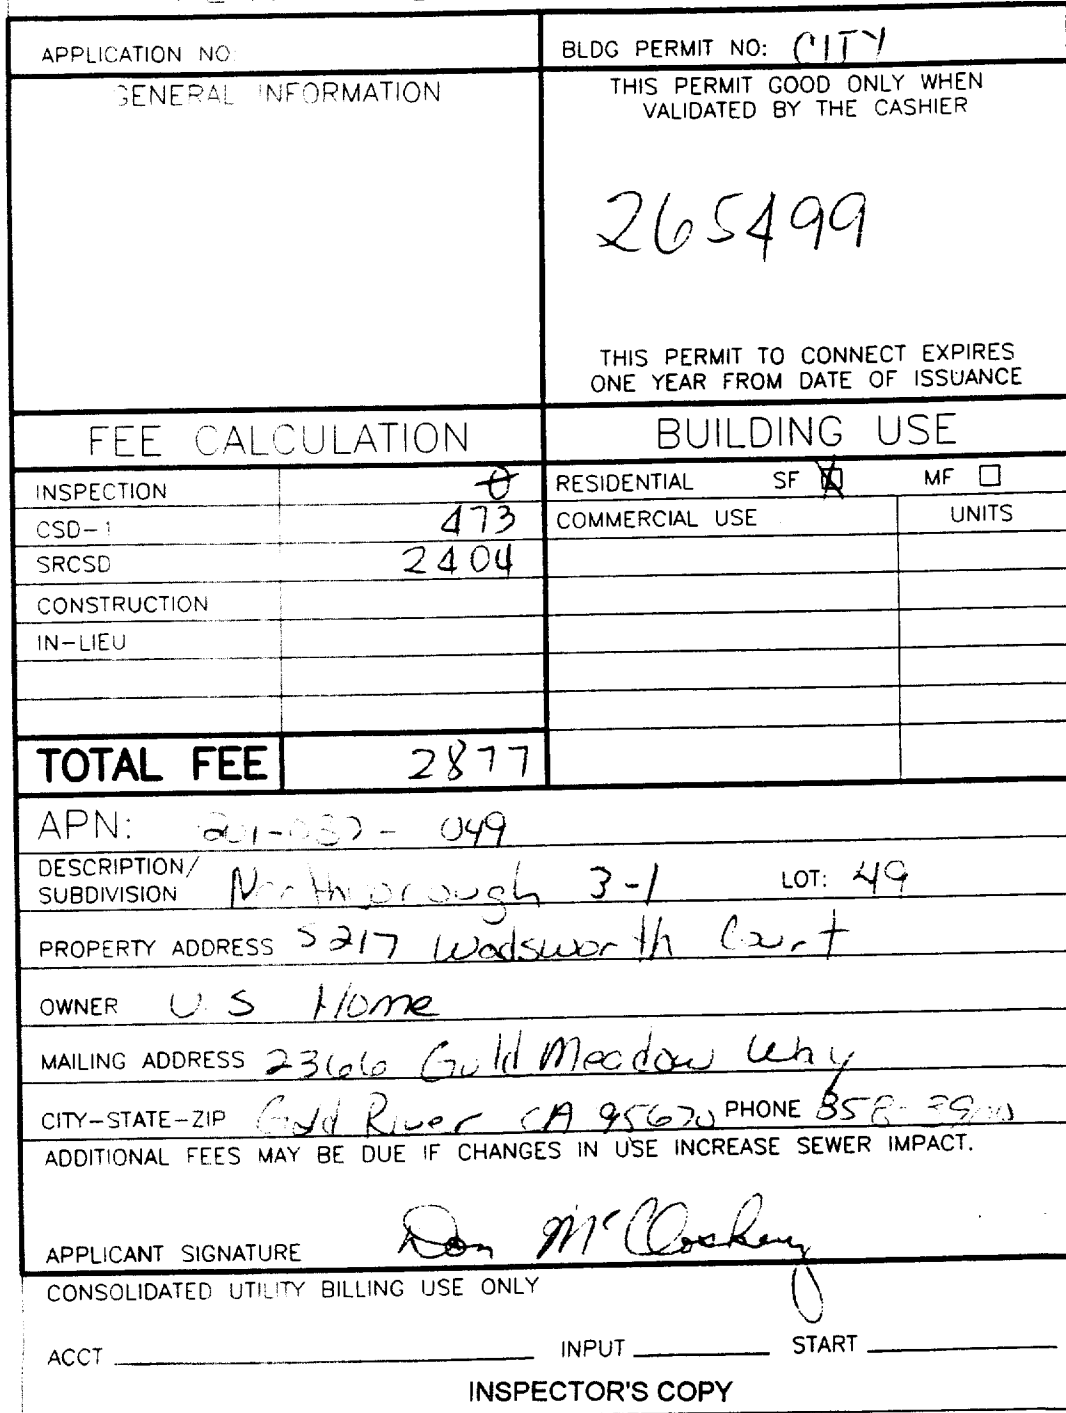 APPLICATION NO:
BLDG PERMIT NO: CITY
GENERAL INFORMATION
THIS PERMIT GOOD ONLY WHEN
VALIDATED BY THE CASHIER
265499
THIS PERMIT TO CONNECT EXPIRES
ONE YEAR FROM DATE OF ISSUANCE
FEE CALCULATION
BUILDING USE
INSPECTION 0
RESIDENTIAL SF ☒ MF ☐
CSD-1 473
COMMERCIAL USE UNITS
SRCSD 2404
CONSTRUCTION
IN-LIEU
TOTAL FEE 2877
APN: 201-032-049
DESCRIPTION/
SUBDIVISION Northborough 3-1 LOT: 49
PROPERTY ADDRESS 5217 Wadsworth Court
OWNER U.S Home
MAILING ADDRESS 2366 Gold Meadow Way
CITY-STATE-ZIP Gold River CA 95670 PHONE 858-3900
ADDITIONAL FEES MAY BE DUE IF CHANGES IN USE INCREASE SEWER IMPACT.
APPLICANT SIGNATURE Don McCloskey
CONSOLIDATED UTILITY BILLING USE ONLY
ACCT INPUT START
INSPECTOR'S COPY